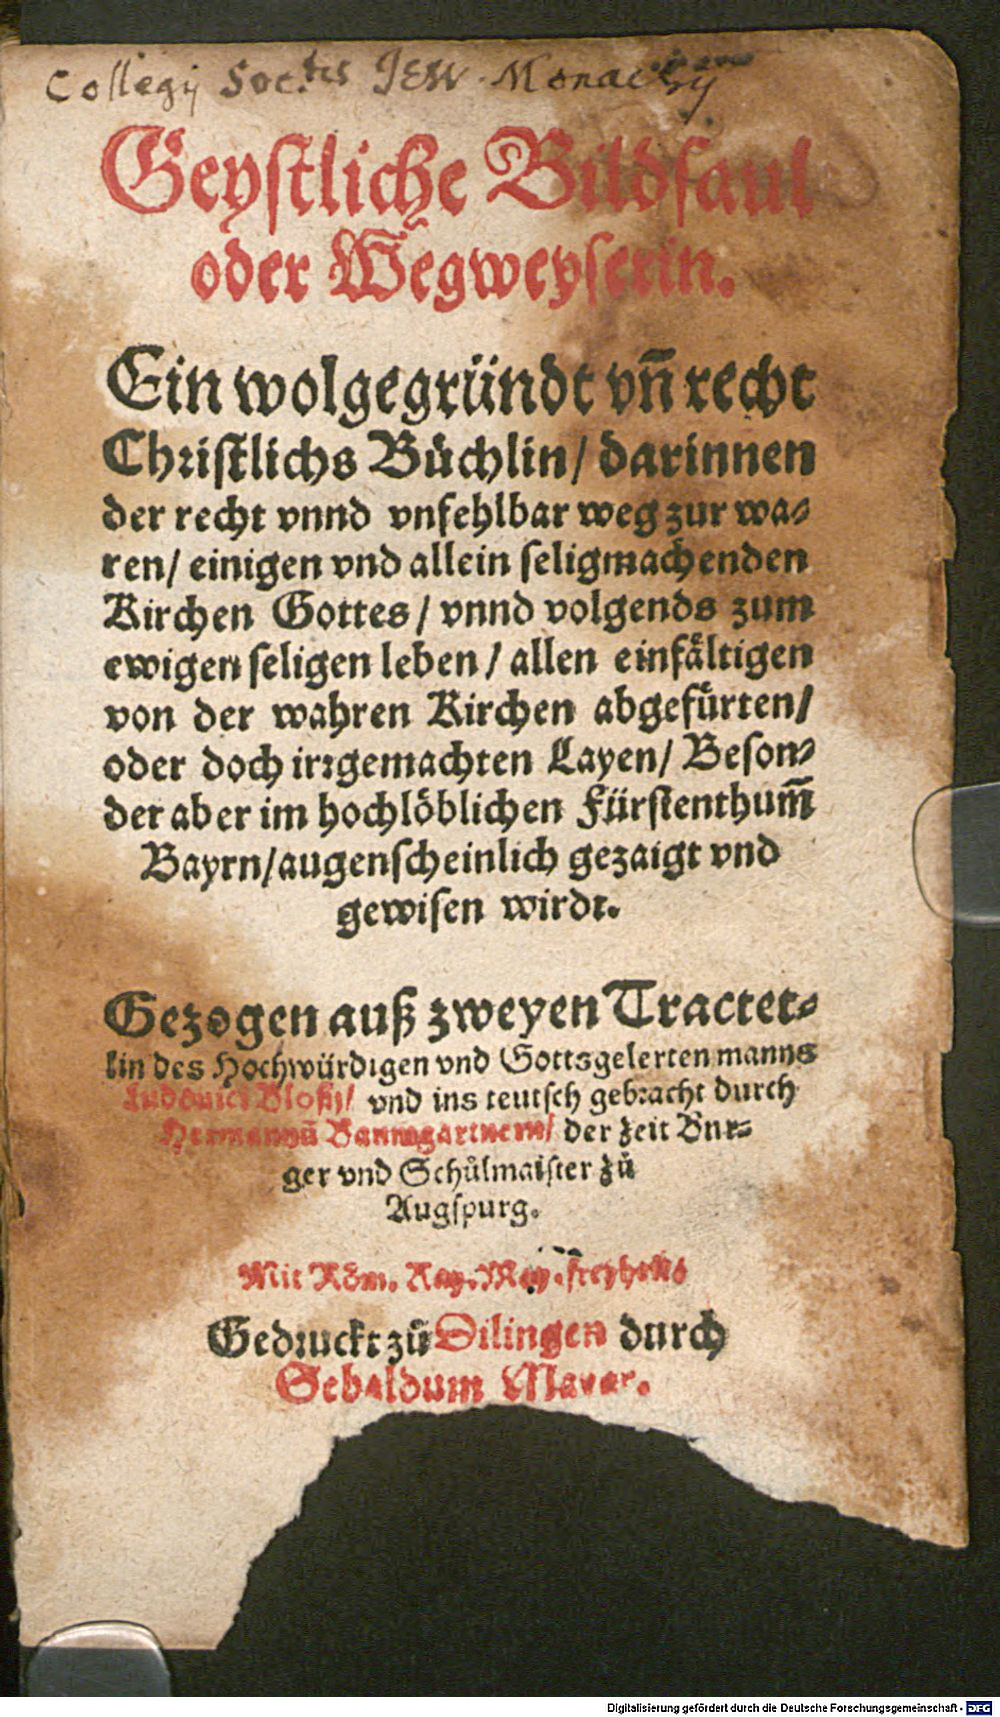 Collegij Soc.tis Jesu Monachij
Geystliche Bildsaul
oder Wegweyserin.
Ein wolgegründt vn̄ recht
Christlichs Bůchlin/ darinnen
der recht vnnd vnfehlbar weg zur wa⸗
ren/ einigen vnd allein seligmachenden
Kirchen Gottes/ vnnd volgends zum
ewigen seligen leben/ allen einfältigen
von der wahren Kirchen abgefürten/
oder doch irrgemachten Layen/ Beson⸗
der aber im hochlöblichen Fürstenthum̄
Bayrn/augenscheinlich gezaigt vnd
gewisen wirdt.
Gezogen auß zweyen Tractet⸗
lin des Hochwürdigen vnd Gottsgelerten manns
Ludouici Blosij/ vnd ins teutsch gebracht durch
Hermannū Baumgartnern/ der zeit Bur⸗
ger vnd Schůlmaister zů
Augspurg.
Mit Röm. Kay. May. freyheit
Gedruckt zů Dilingen durch
Sebaldum Mayer.
Digitalisierung gefördert durch die Deutsche Forschungsgemeinschaft - DFG